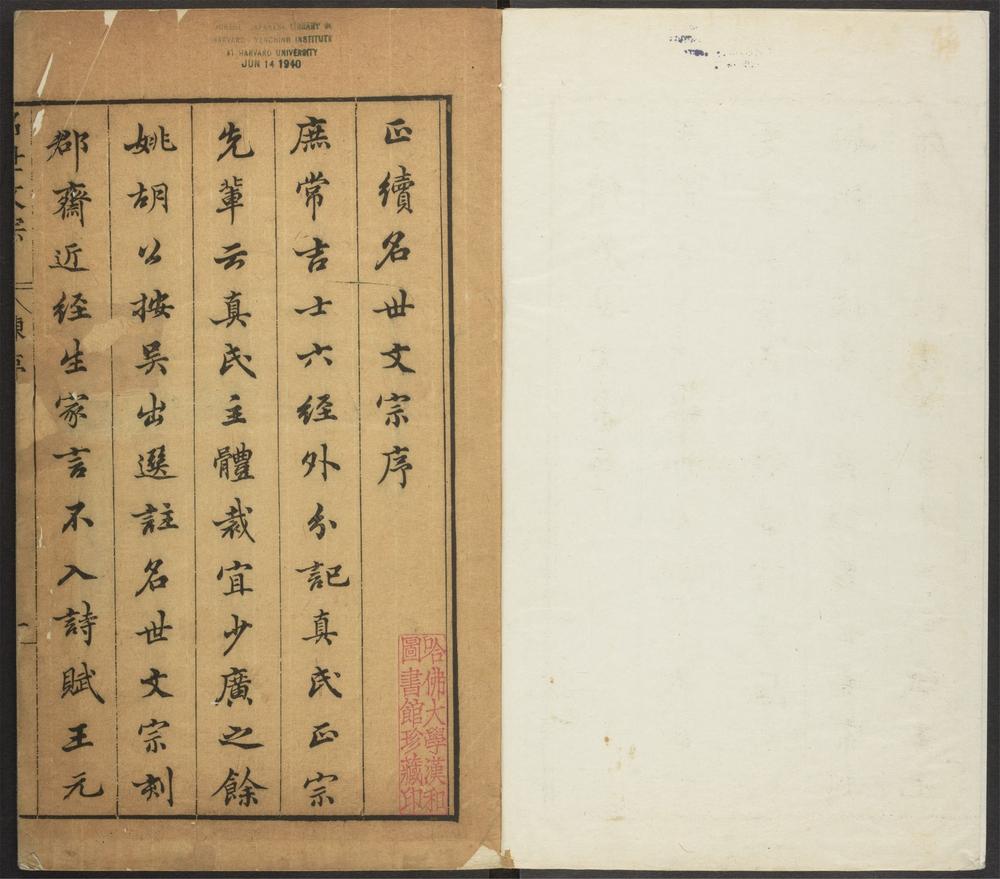 正續名世文宗序
庶常吉士六經外分記真氏正宗
先輩云真氏主體裁宜少廣之餘
姚胡公按吳出選註名世文宗刻
郡齋近經生家言不入詩賦王元
名世文宗
陳序
一
哈佛大學漢和
圖書館珍藏印
CHINESE JAPANESE LIBRARY OF
HARVARD YENCHING INSTITUTE
AT HARVARD UNIVERSITY
JUN 14 1940